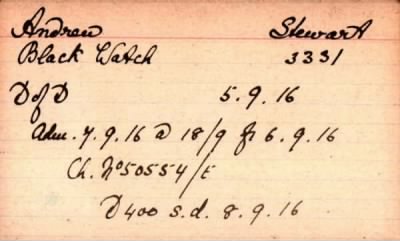 Andrew Stewart
Black Watch 3331
D of D 5.9.16
Adm. 7.9.16 @ 18/9 fr 6.9.16
Ch. No 50554/E
D400 s.d. 8.9.16